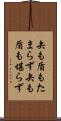 矢も盾もた
まらず矢も
盾も堪らず